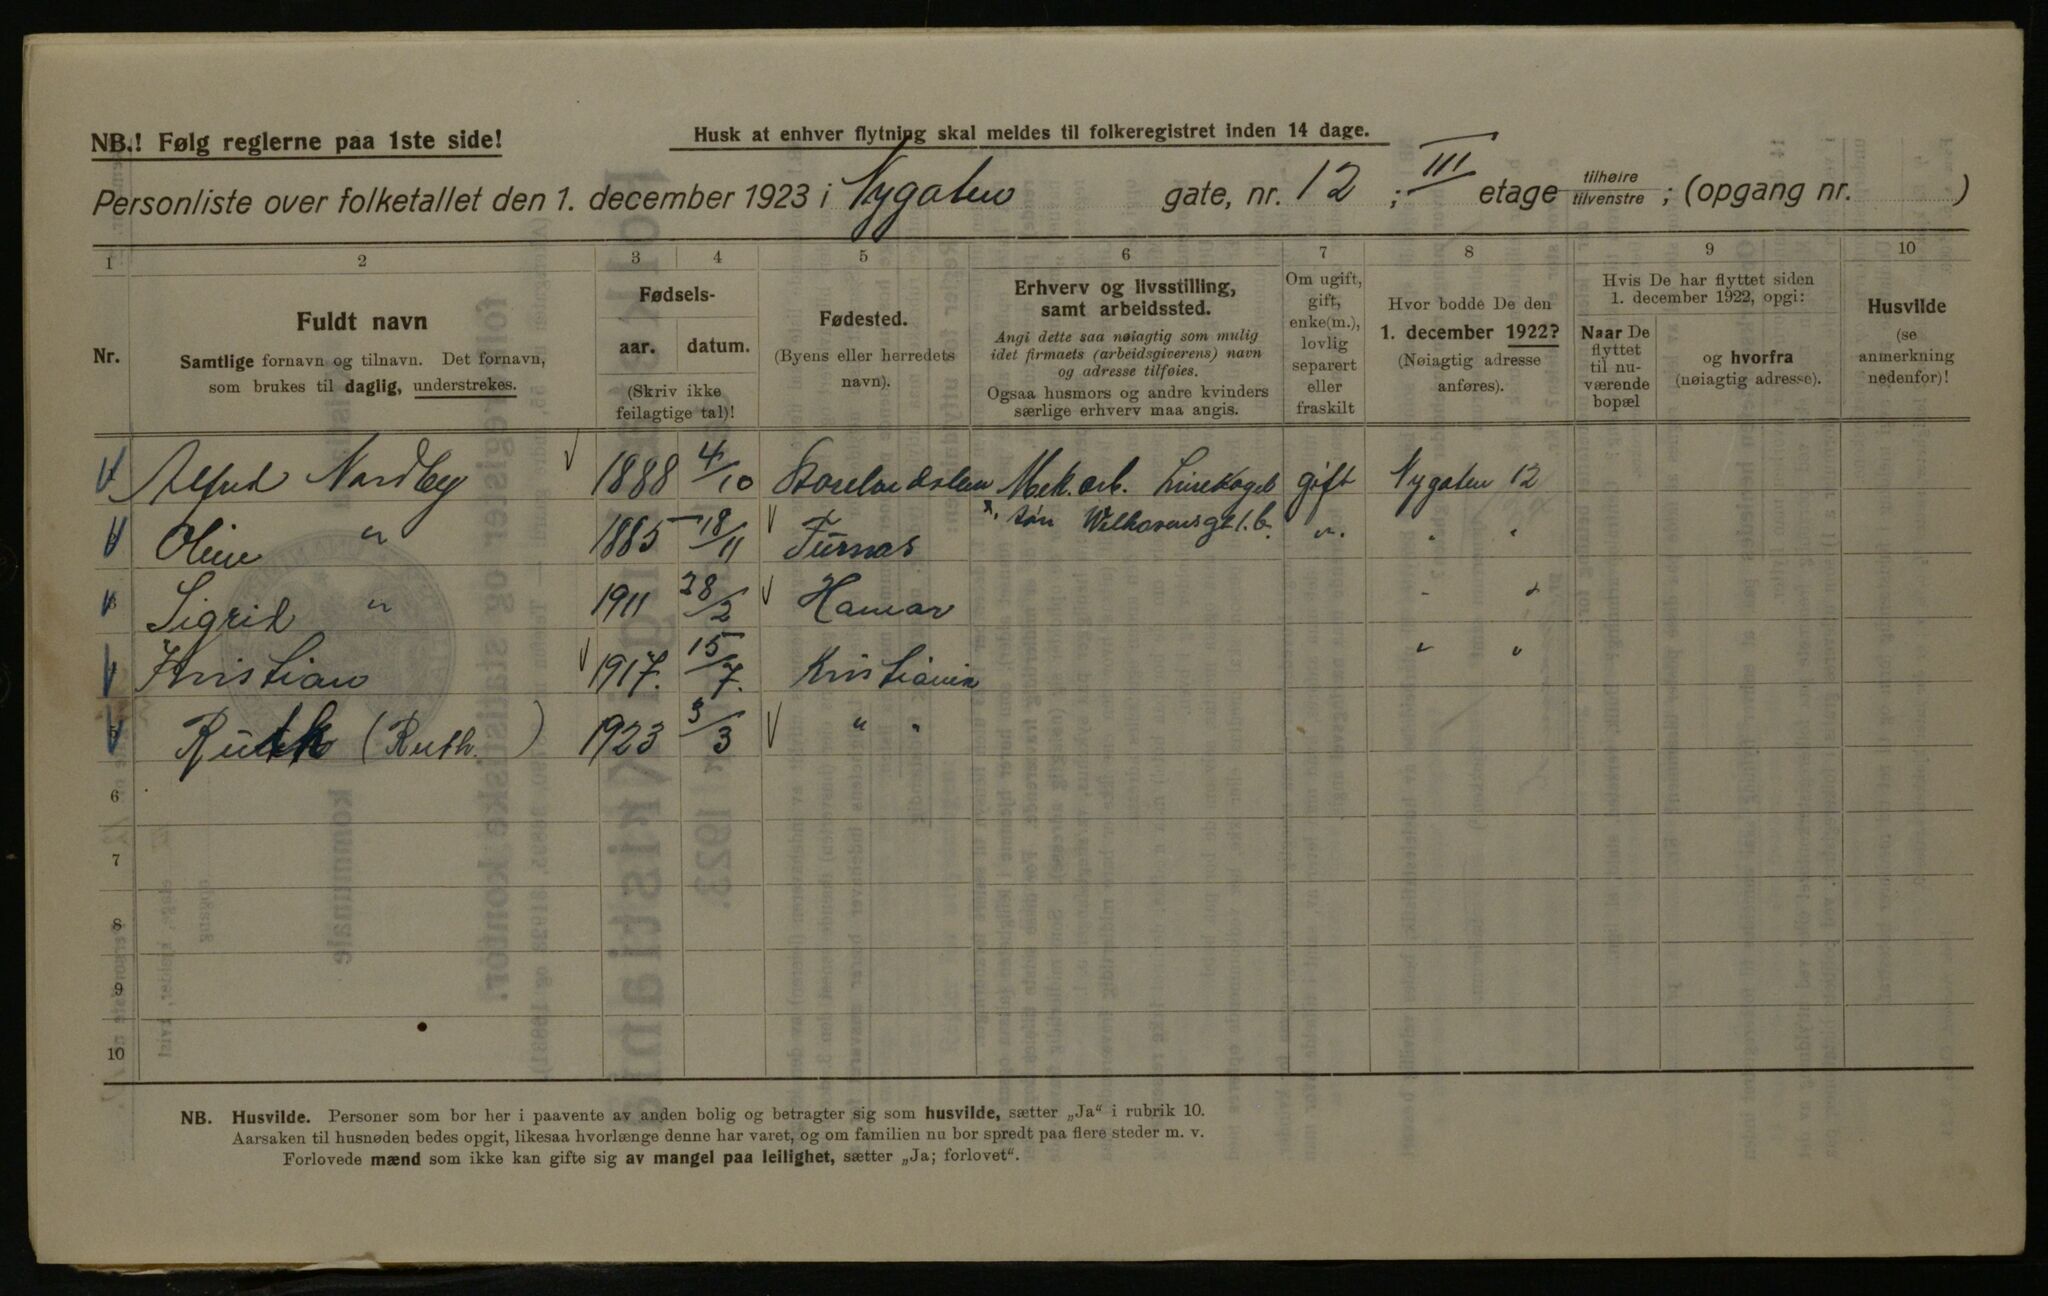 NB.! Følg reglerne paa 1ste side!
Husk at enhver flytning skal meldes til folkeregistret inden 14 dage.
Personliste over folketallet den 1. december 1923 i Nygaten gate, nr. 12 ; III etage tilhøire tilvenstre ; (opgang nr. )
1 2 3 4 5 6 7 8 9 10
Nr.
Fuldt navn
Samtlige fornavn og tilnavn. Det fornavn,
som brukes til daglig, understrekes.
Fødsels-
aar. datum.
(Skriv ikke
feilagtige tal)!
Fødested.
(Byens eller herredets
navn).
Erhverv og livsstilling,
samt arbeidssted.
Angi dette saa nøiagtig som mulig
idet firmaets (arbeidsgiverens) navn
og adresse tilføies.
Ogsaa husmors og andre kvinders
særlige erhverv maa angis.
Om ugift,
gift,
enke(m.),
lovlig
separert
eller
fraskilt
Hvor bodde De den
1. december 1922?
(Nøiagtig adresse
anføres).
Hvis De har flyttet siden
1. december 1922, opgi:
Naar De
flyttet
til nu-
værende
bopæl
og hvorfra
(nøiagtig adresse).
Husvilde
(se
anmerkning
nedenfor)!
Alfred Nordby 1888 4/10 Mek. arb. gift Nygaten 12
Oline " 1885 18/11 Furnæs " " "
Sigrid " 1911 28/2 Hamar " "
Kristian 1917. 15/7. Kristiania " "
Ruth (Ruth.) 1923 3/3 " "
6
7
8
9
10
NB. Husvilde. Personer som bor her i paavente av anden bolig og betragter sig som husvilde, sætter „Ja“ i rubrik 10.
Aarsaken til husnøden bedes opgit, likesaa hvorlænge denne har varet, og om familien nu bor spredt paa flere steder m. v.
Forlovede mænd som ikke kan gifte sig av mangel paa leilighet, sætter „Ja; forlovet“.